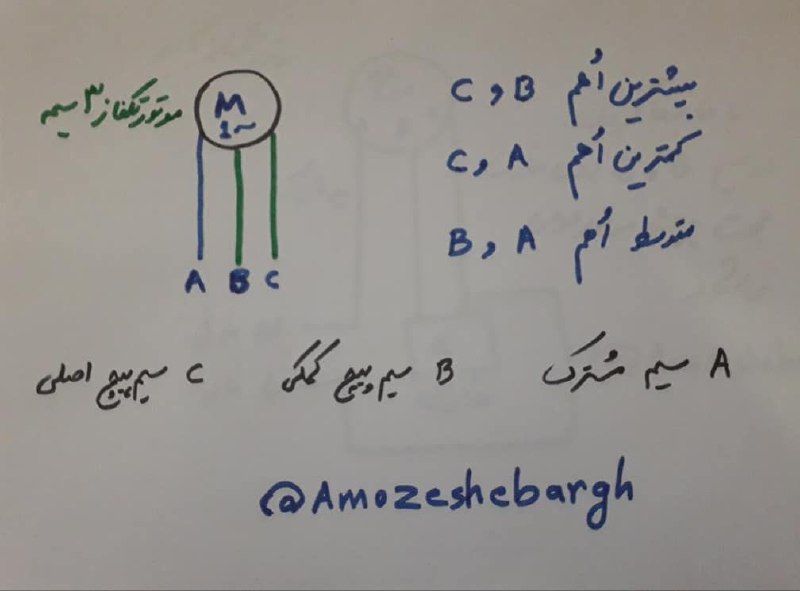 موتور تکفاز ۳ سیمه
M
1~
A B C
بیشترین اُهم B و C
کمترین اُهم A و C
متوسط اُهم A و B
A سیم مشترک
B سیم پیچ کمکی
C سیم پیچ اصلی
@Amozeshebargh